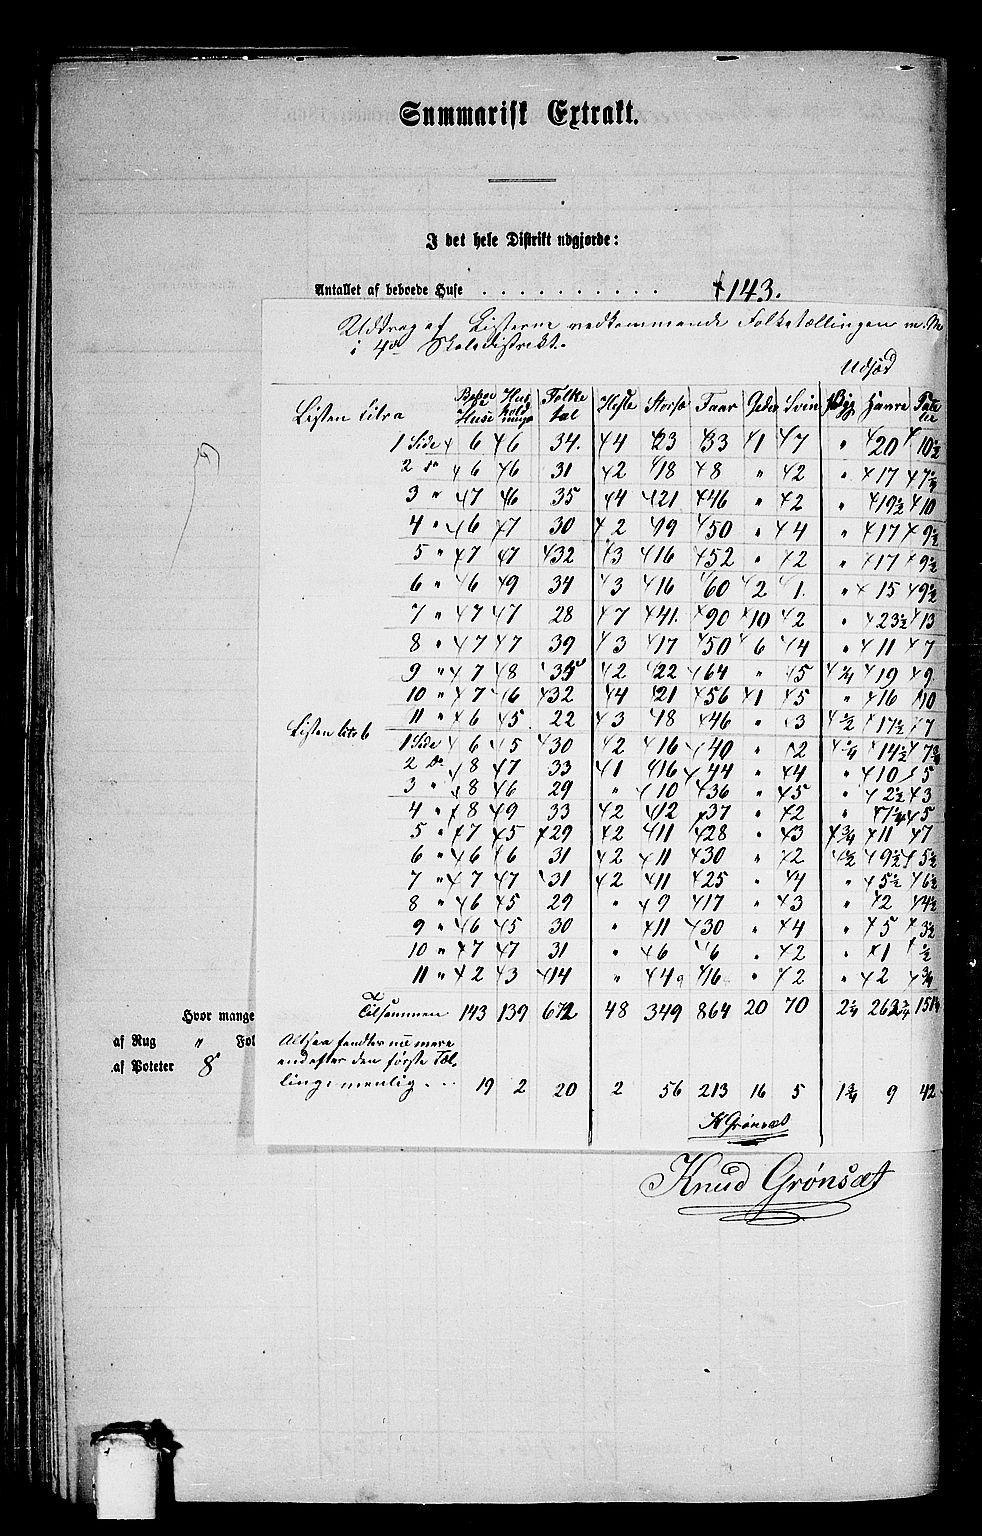 Summarisk Extrakt.
I det hele Distrikt udgjorde:
Antallet af beboede Huse . . . . . . . . . . 143.
Uddrag af Listerne vedkommende Folketællingen m. M
i 4de Skoledistrikt.
Udsæd
Listen Litra Beboede Huse Hus holdninger Folketal Heste Storfæ Faar Geder Svin Byg Havre Poteter
1 Side 6 6 34. 4 23 33 1 7 " 20 10½
2 do 6 6 31 2 18 8 " 2 " 17 7¼
3 " 7 6 35 4 21 46 " 2 " 19½ 10
4 " 6 7 30 2 19 50 " 4 " 17 9½
5 " 7 7 32 3 16 52 " 2 " 17 9½
6 " 6 9 34 3 16 60 2 1. " 15 9½
7 " 7 7 28 7 41. 90 10 2 " 23½ 13
8 " 7 7 39 3 17 50 6 4 " 11 7
9 " 7 8 35 2 22 64 " 5 ¼ 19 9
10 " 7 6 32 4 21 56 1 5 " 16 10
11 " 6 5 22 3 18 46 " 3 ½ 17½ 7
Listen litr b
1 Side 6 5 30 2 16 40 " 2 ¼ 14½ 7¾
2 do 8 7 33 1 16 44 " 4 " 10 5
3 " 8 6 29 " 10 36 " 5 " 2½ 3
4 " 8 9 33 2 12 37 " 2 " 7¼ 5
5 " 7 5 29 2 11 28 " 3 ¾ 11 7
6 " 6 6 31 2 11 30 " 2 ½ 9½ 5½
7 " 7 7 31 2 11 25 " 4 " 5½ 6½
8 " 6 5 29 " 9 17 " 3 " 2 4½
9 " 6 5 30 " 11 30 " 4 " 5 3½
10 " 7 7 31 " 6 6 " 2 " 1 ½
11 " 2 3 14 " 4 16 " 2 " 2 ¾
Tilsammen 143 139 672 48 349 864 20 70 2¼ 262¾ 151¼
Hvor mange
af Rug " Fol
af Poteter 8
Altsaa fandtes nu mere
end efter den første Tæl-
ling, nemlig . . . 19 2 20 2 56 213 16 5 1¾ 9 42
K Grønsæt
Knud Grønsæt